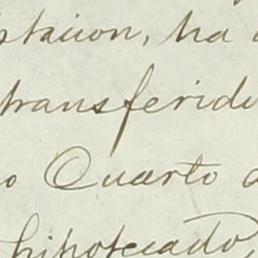 ptacion, ha
transferido
o Quarto
hipotecado,